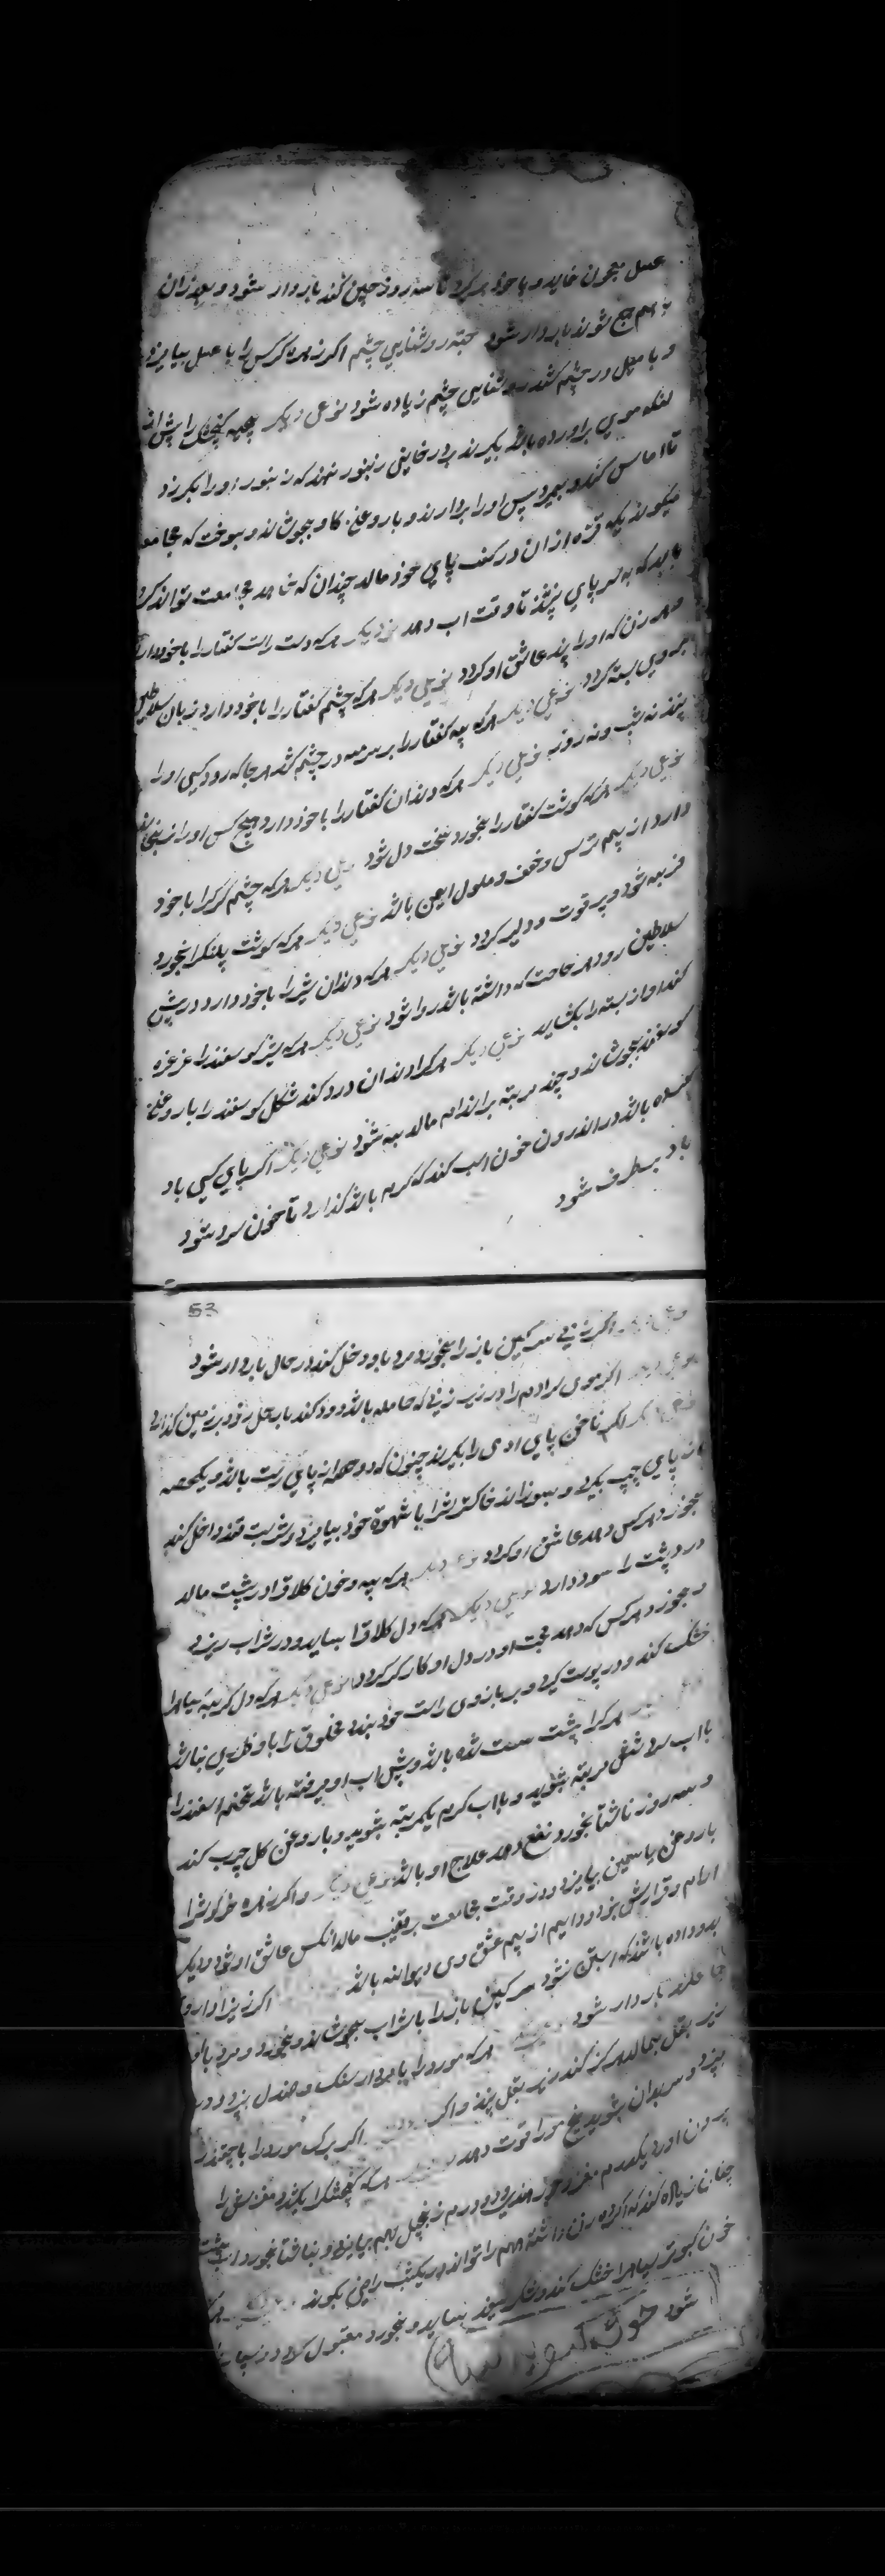 عسل بیجون خاید و با خود گیرد تا سه روز چنین کند باردار شود و بعد زان
بهم جمع شوند باردار شود جهته روشنایی چشم اگر زهره کرکس را با عسل بیامیزد
و با میل در چشم کشد روشنایی چشم زیاده شود نوعی دیگر بچه کنجشک را پیش از
انکه موی براورده باشد بگیرند و در خانه زنبور نهند که زنبور او را بگزد
تا اماس کند و بمیرد پس او را بردارند و با روغن کاو بجوشانند وبوقت که مجامعت
میکوند یک قطره از ان در کف پای خود مالد چندان که خاهد مجامعت تواند کرد
باید که به سر پای نه نشیند تا وقت اب دهد نوعی دیگر هرکه دست راست کفتار را با خود دارد
هر زن که او را بیند عاشق او کردد نوعی دیگر هرکه چشم کفتار را با خود دارد زبان سلاطین
بروی بسته کردد نوعی دیگر هرکه پیه کفتار را بر سرمه در چشم کشد هر جا که رود کسی او را
نبیند نه شب و نه روز نوعی دیگر هرکه دندان کفتار را با خود دارد هیچ کس او را نرنجاند
نوعی دیگر هرکه کوشت کفتار را بخورد سخت دل شود نوعی دیگر هرکه چشم کرک را با خود
دارد از بیم ترس و خوف و ملول ایمن باشد نوعی دیگر هرکه کوشت پلنک را بخورد
فربه شود و پر قوت و دلیر کردد نوعی دیگر هرکه دندان شیر را با خود دارد در پیش
سلاطین رود هر حاجت که داشته باشد روا شود نوعی دیگر هرکه شیر کوسفند را غرغره
کند اواز بسته را بکشاید نوعی دیگر هرکرا دندان درد کند شکل کوسفند را با روغن
کوسفند بجوشاند و چند مرتبه بر اندام مالد به شود نوعی دیگر اکر پای کسی باد
باشد در اندرون خون اسب کند که کرم باشد کذارد تا خون سرد شود
باد برطرف شود
53
نوعی دیگر اکر زنی سرکین باز را بخورد مرد با او دخل کند در حال باردار شود
نوعی دیگر اکر موی سر ادم را در زیر زنی که حامله باشد دود کند بار حمل زود بر زمین کذارد
نوعی دیگر اکر ناخن پای ادمی را بگیرند چنون که دو حصه از پای راست باشد و یکحصه
از پای چپ بگیرد و بسوزاند خاکسترش را با شهوة خود بیامیزد و شربت قند داخل کند
بخورد هر کس دهد عاشق او کردد نوعی دیگر هرکه پیه و خون کلاغ را در پشت مالد
درد پشت را سود دارد نوعی دیگر هرکه دل کلاغ را بساید و در شراب ریزد
بخورد هر کس که دهد محبت او در دل او کار کر کردد نوعی دیگر هرکه دل کربه سیاه را
خشک کند و در پوست کیرد و بر بازوی راست خود بندد مخلوق را با و ظفر نباشد
هر کرا پشت سست شده باشد و پیش اب او میرفته باشد تخم اسفند را
با اب سرد شش مرتبه بشوید و با اب کرم یکمرتبه بشوید و با روغن کل چرب کند
و سه روز ناشتا بخورد نفع دهد علاج او باشد نوعی دیگر و اکر زهره خرکوش را
با روغن یاسمین بیامیزد و در وقت مجامعت بر قضیب مالد انکس عاشق او شود و دیگر
ارام و قرارش نبود و دایم از بیم عشق وی دیوانه باشد اکر زنی را دارو
بدو داده باشند که ابستن نشود سرکین باز را با شراب بجوشاند و بخورد و مرد با او
جماع کند باردار شود هرکه مورد را با مردار سنک و صندل بپزد و در
زیر بغل بمالد هرکز کند زیر بغل نزند و اکر اکر برک مورد را با چغندر
بپزد و سر بدان بشوید بیخ مو را قوت دهد هرکه کنجشک را بکشد و مغزش را
بیرون اورد یکدرم مغز و جوز هندی و دو درم زنجبیل بهم بیامیزد و ناشتا بخورد اب پشت
چنان زیاده کند که اکر ده زن داشته همه را تواند در یکشب راضی بکوند
خون کبوتر سیاه را خشک کند و شکر سپید بساید و بخورد مقبول کردد
شود خون کبوتر سیاه